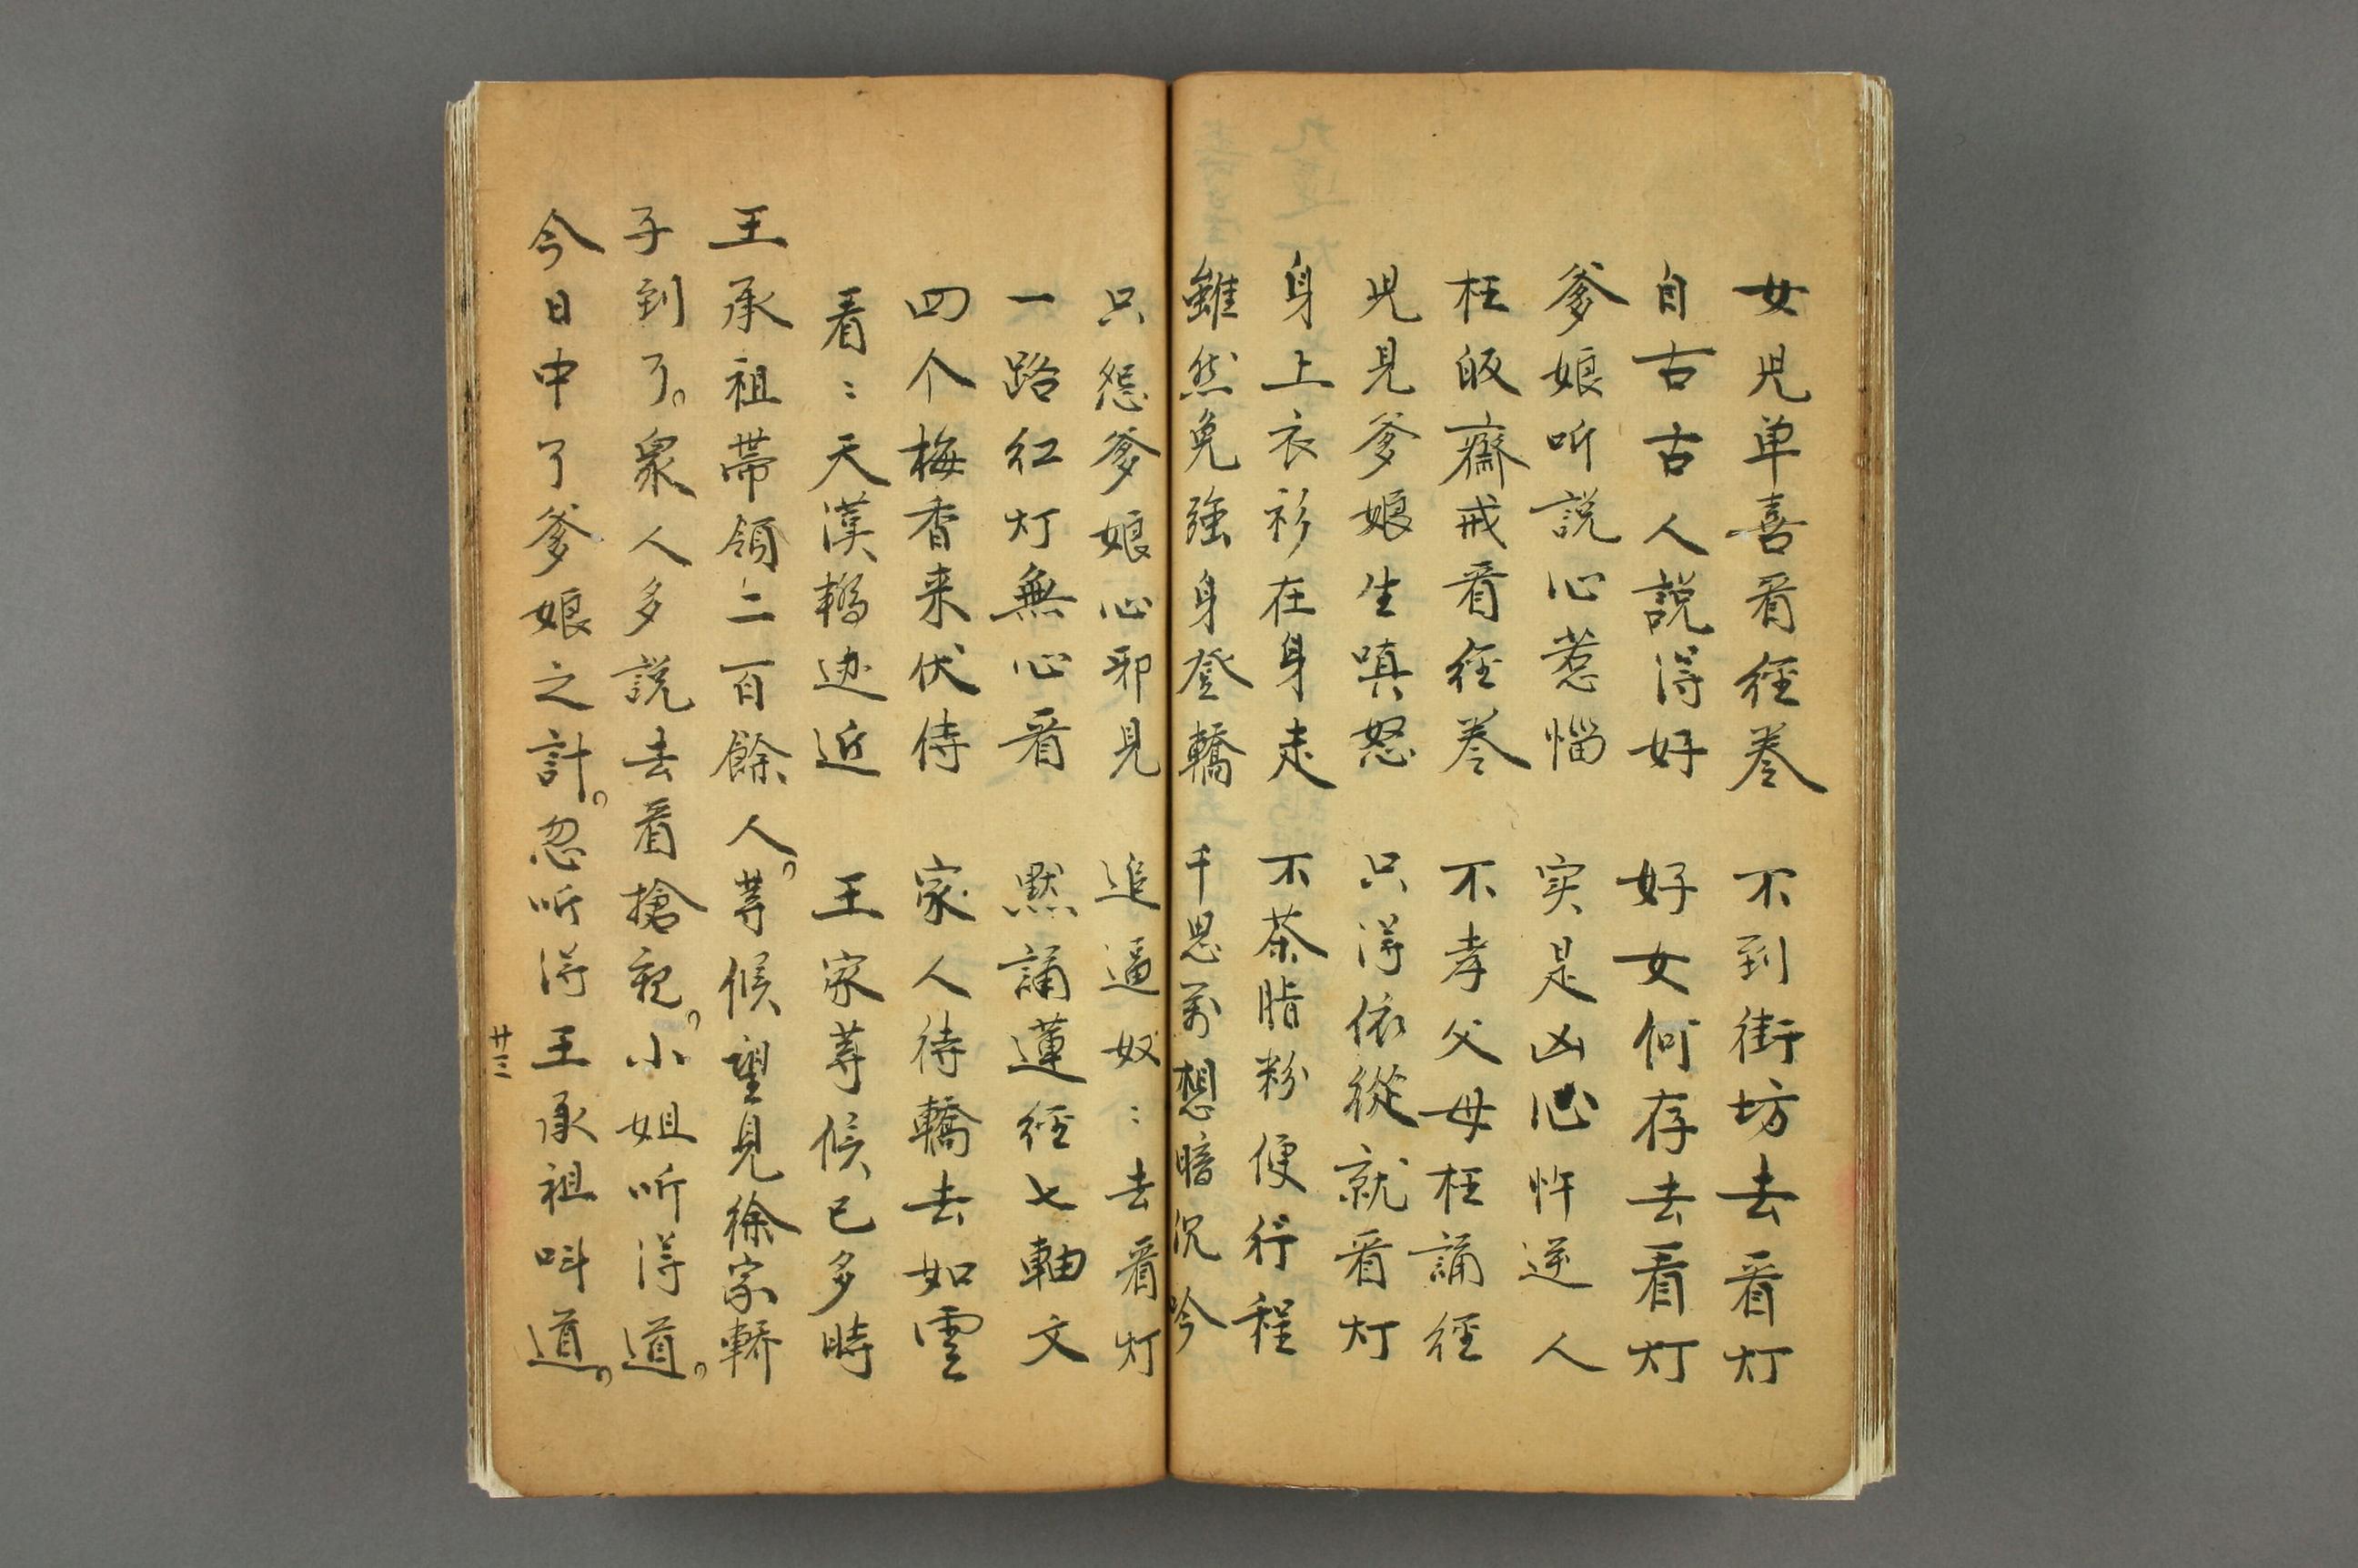 女児单喜看經卷　不到街坊去看灯
自古古人說淂好　好女何存去看灯
爹娘听說心惹惱　实是凶心忤逆人
枉皈齋戒看經卷　不孝父母枉誦經
児見爹娘生嗔怒　只淂依從就看灯
身上衣衫在身走　不茶脂粉便行程
雖然免強身登轎　千思萬想暗沉吟
只怨爹娘心邪見　追逼奴:去看灯
一路红灯無心看　黙誦蓮經七軸文
四个梅香来伏侍　家人待轎去如雲
看:天漢轎迯近　王家䓁候已多時
王承祖帶領二百餘人。䓁候望見徐家轎
子到了。衆人多說去看搶親。小姐听淂道。
今日中了爹娘之計。忽听淂王承祖呌道。
廿三